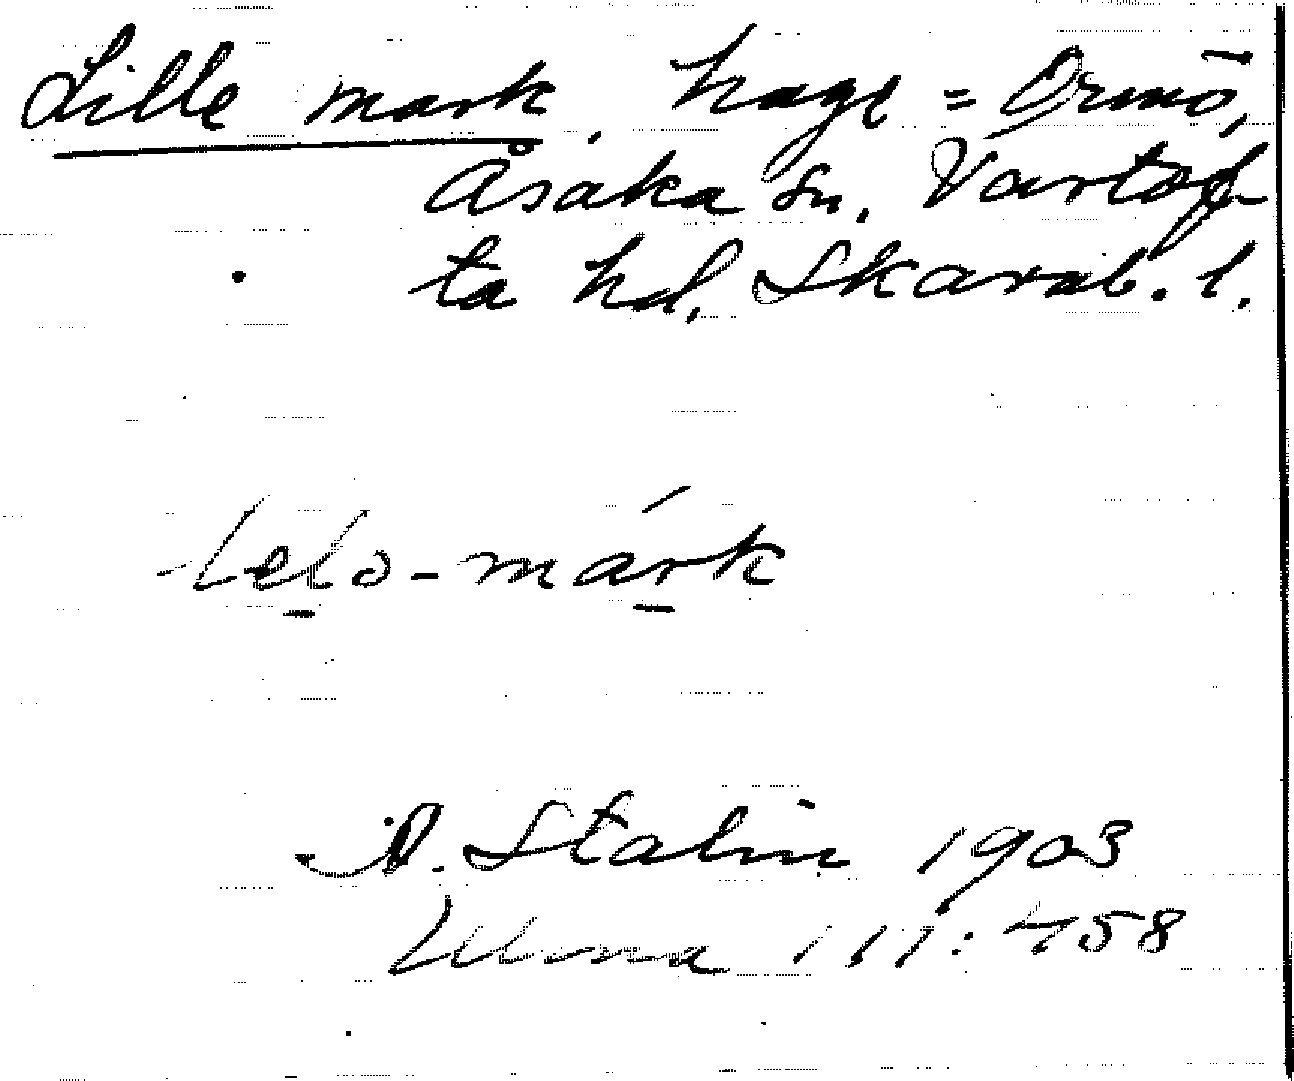 Lille mark, hage = Ormö,
Åsaka sn, Vartof-
ta hd, Skarab. l.
lelo-mark
A. Stalin 1903
Ulma 111: 458